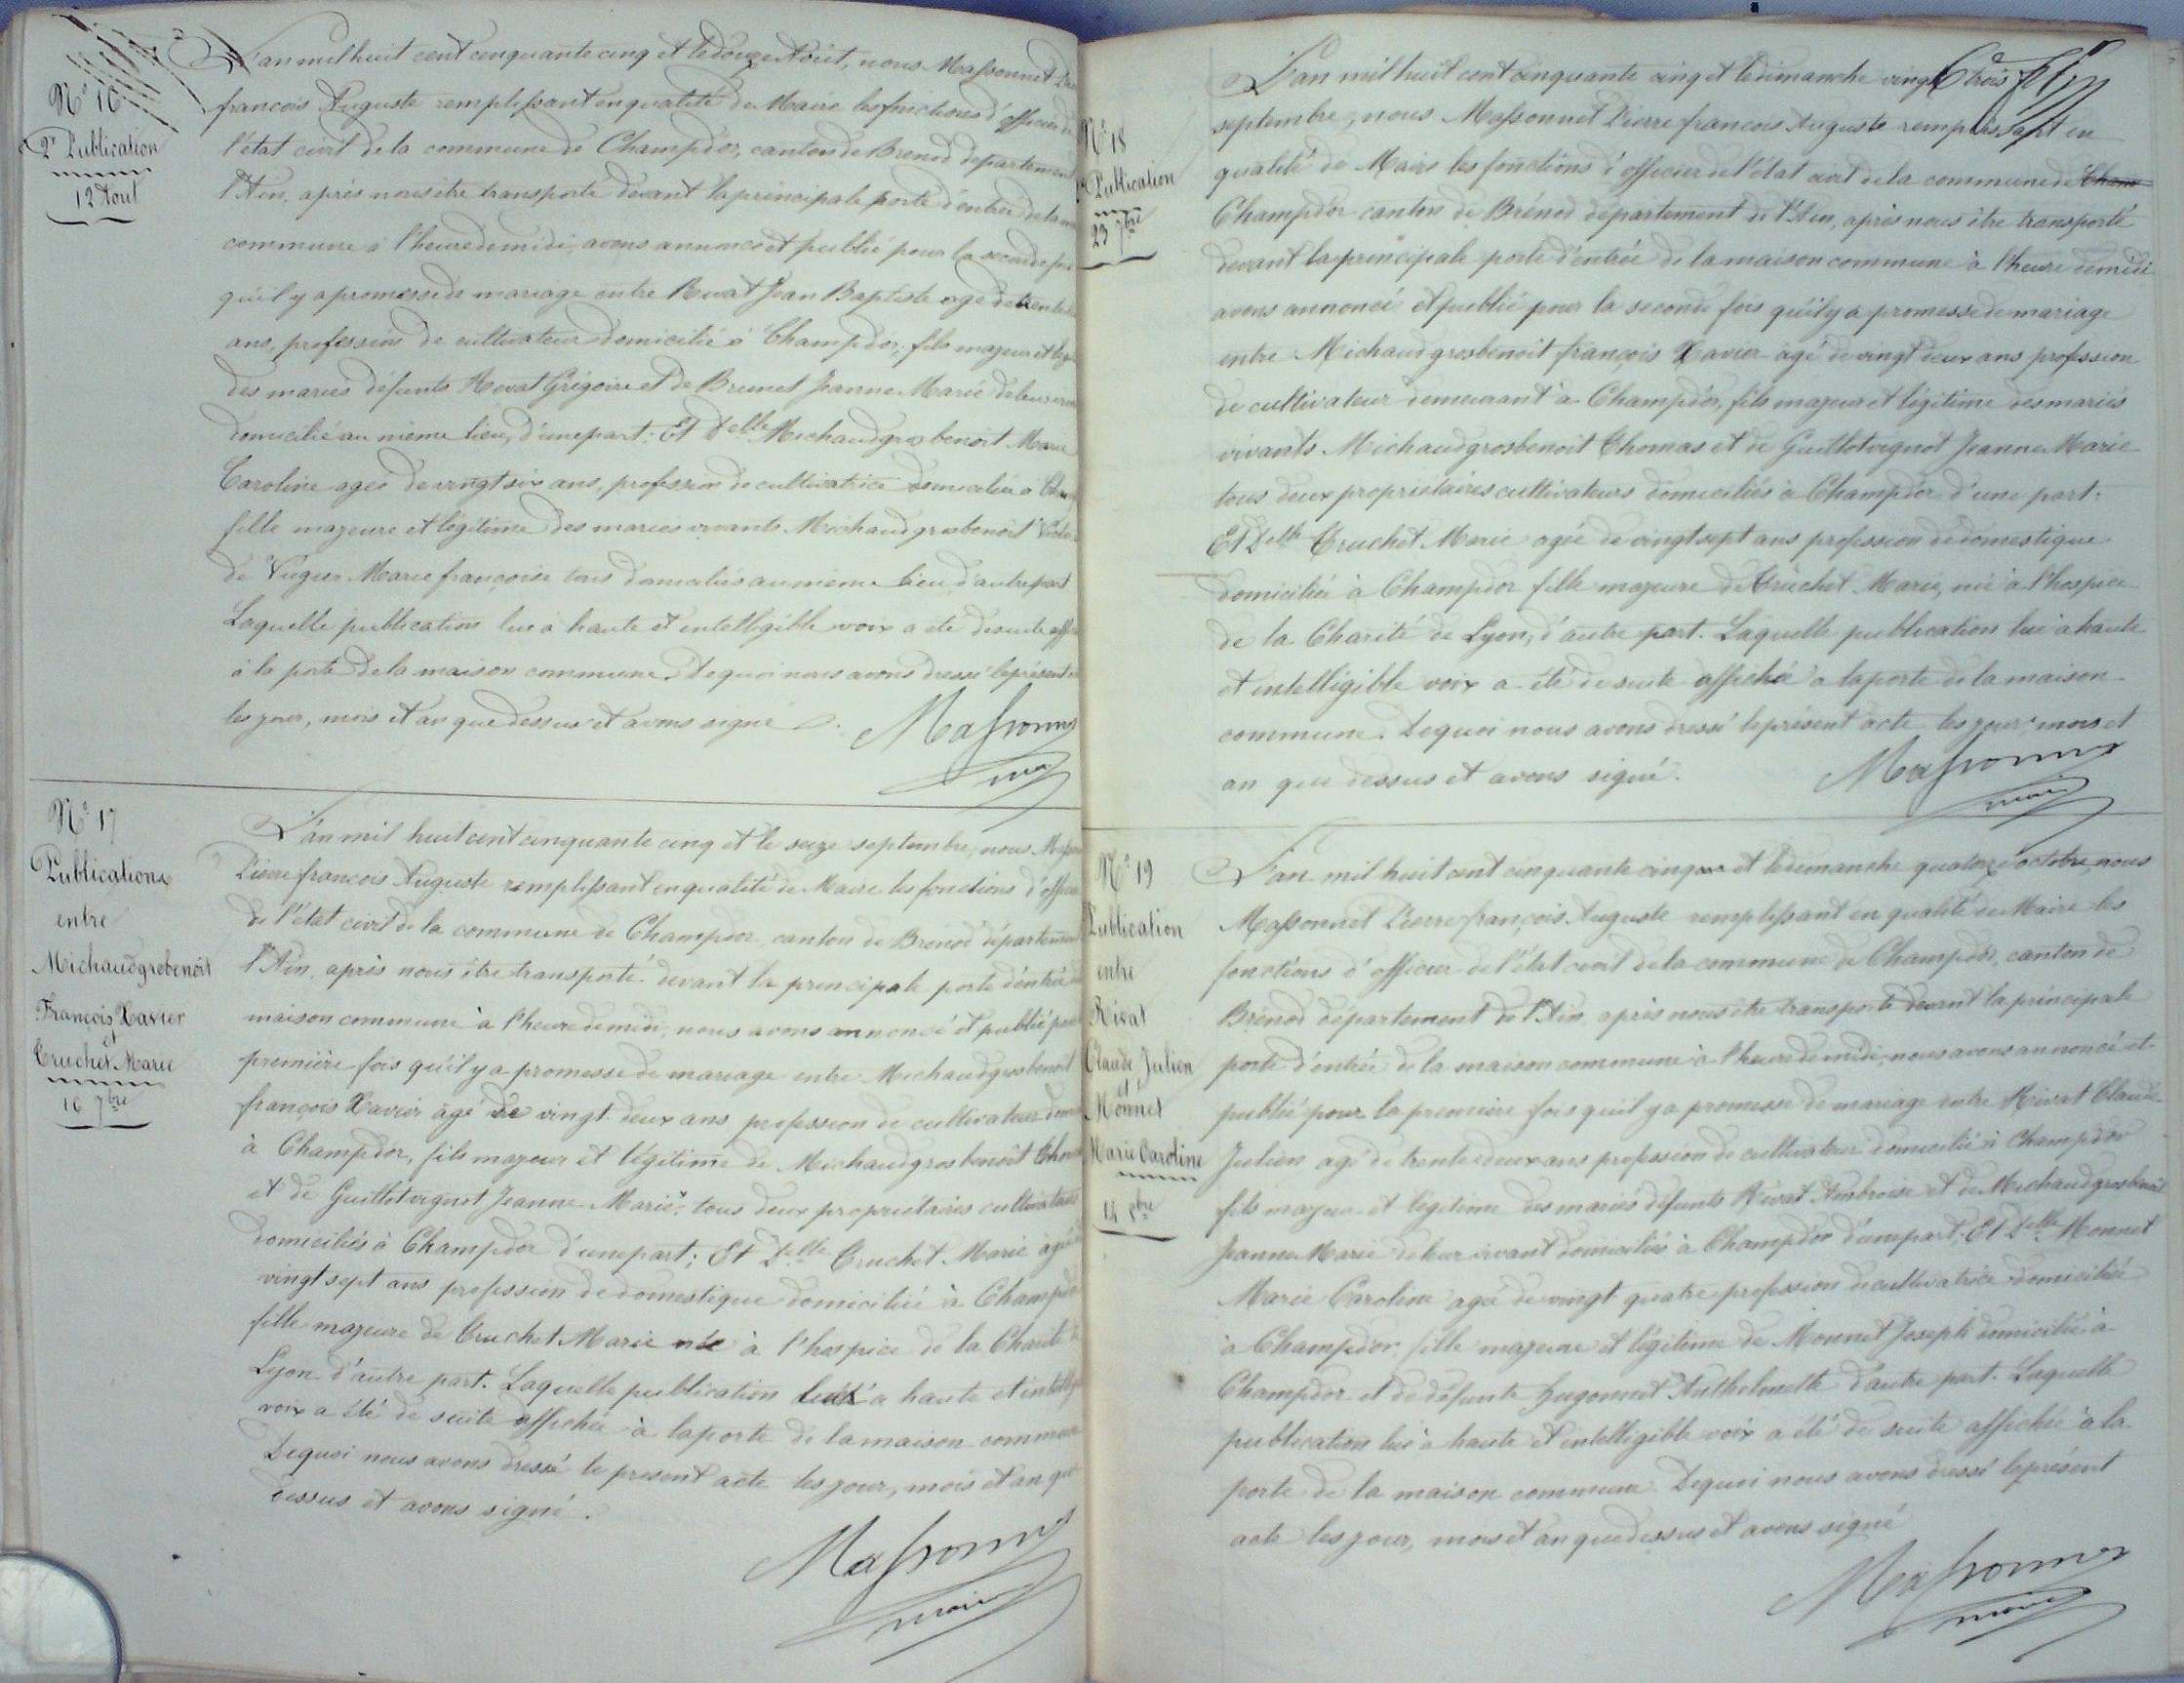 N° 16
2e Publication
12 Aout
L'an mil huit cent cinquante cinq et le douze Aoüt, nous Massonnet
francois Auguste remplissant en qualité de Maire les fonctions d'officier de
l'état civil de la commune de Champdor, canton de Brenod département
l'Ain, après nous être transporté devant la principale porte d'entrée de la
commune à l'heure de midi, avons annoncé et publié pour la seconde fois
qu'il y a promesse de mariage entre Rivat Jean Baptiste agé de trente
ans, profession de cultivateur domicilié à Champdor, fils majeur et
des mariés défunts Rivat Grégoire et de Brunet Jeanne Marie de leur vivant
domicilié au même lieu, d'une part; Et Delle Michaudgrosbenoit Marie
Caroline agée de vingt six ans, profession de cultivatrice domiciliée à
fille majeure et légitime des mariés vivants Michaudgrosbenoit
de Vuger Marie françoise tous domiciliés au même lieu d'autre part
Laquelle publication lue à haute et intelligible voix a été de suite
à la porte de la maison commune. De quoi nous avons dressé le présent
les jour, mois et an que dessus et avons signé.
Massonnet
maire
N° 17
Publications
entre
Michaudgrobenoit
François Xavier
et
Truchet Marie
16 7bre
L'an mil huit cent cinquante cinq et le seize septembre, nous
Pierre francois Auguste remplissant en qualité de Maire les fonctions d'officier
de l'état civil de la commune de Champdor, canton de Brénod département
l'Ain, après nous être transporté devant la principale porte d'entrée
maison commune à l'heure de midi, nous avons annoncé et publié pour
première fois qu'il y a promesse de mariage entre Michaudgrosbenoit
françois Xavier âgé de vingt deux ans profession de cultivateur
à Champdor, fils majeur et légitime de Michaudgrosbenoit Thomas
et de Guillotvignot Jeanne Marie, tous deux propriétaires cultivateurs
domiciliés à Champdor d'une part; Et Delle Truchet Marie agée
vingt sept ans profession de domestique domiciliée à Champdor
fille majeure de Truchet Marie née à l'hospice de la Charité
Lyon d'autre part. Laquelle publication lue à haute et
voix a été de suite affichée à la porte de la maison commune
De quoi nous avons dressé le présent acte les jour, mois et an que
dessus et avons signé.
Massonnet
maire
N° 18
Publication
23 7bre
L'an mil huit cent cinquante cinq et le dimanche vingt trois
septembre, nous Massonnet Pierre francois Auguste remplissant en
qualité de Maire les fonctions d'officier de l'état civil de la commune de Cham
Champdor canton de Brénod département de l'Ain, après nous être transporté
devant la principale porte d'entrée de la maison commune à l'heure de midi
avons annoncé et publié pour la seconde fois qu'il y a promesse de mariage
entre Michaudgrosbenoit françois Xavier agé de vingt deux ans profession
de cultivateur demeurant à Champdor, fils majeur et légitime des mariés
vivants Michaudgrosbenoit Thomas et de Guillotvignot Jeanne Marie
tous deux propriétaires cultivateurs domiciliés à Champdor d'une part;
Et Delle Truchet Marie agée de vingt sept ans profession de domestique
domiciliée à Champdor fille majeure de Truchet Marie, née à l'hospice
de la Charité de Lyon, d'autre part. Laquelle publication lue à haute
et intelligible voix a été de suite affichée à la porte de la maison
commune. De quoi nous avons dressé le présent acte les jour, mois et
an que dessus et avons signé.
Massonnet
maire
N° 19
Publication
entre
Rivat
Claude Julien
et
Monnet
Marie Caroline
14 8bre
L'an mil huit cent cinquante cinq et le dimanche quatorze octobre, nous
Massonnet Pierre françois Auguste remplissant en qualité de Maire les
fonctions d'officier de l'état civil de la commune de Champdor, canton de
Brénod département de l'Ain, après nous être transporté devant la principale
porte d'entrée de la maison commune à l'heure de midi, nous avons annoncé et
publié pour la première fois qu'il y a promesse de mariage entre Rivat Claude
Julien agé de trente deux ans profession de cultivateur domicilié à Champdor
fils majeur et légitime des mariés défunts Rivat Ambroise et de Michaudgrosbenoit
Jeanne Marie de leur vivant domiciliés à Champdor d'une part; Et Delle Monnet
Marie Caroline agée de vingt quatre profession de cultivatrice domiciliée
à Champdor fille majeure et légitime de Monnet Joseph domicilié à
Champdor et de défunte Hugonnet Anthelmette d'autre part. Laquelle
publication lue à haute et intelligible voix a été de suite affichée à la
porte de la maison commune. De quoi nous avons dressé le présent
acte les jour, mois et an que dessus et avons signé
Massonnet
maire